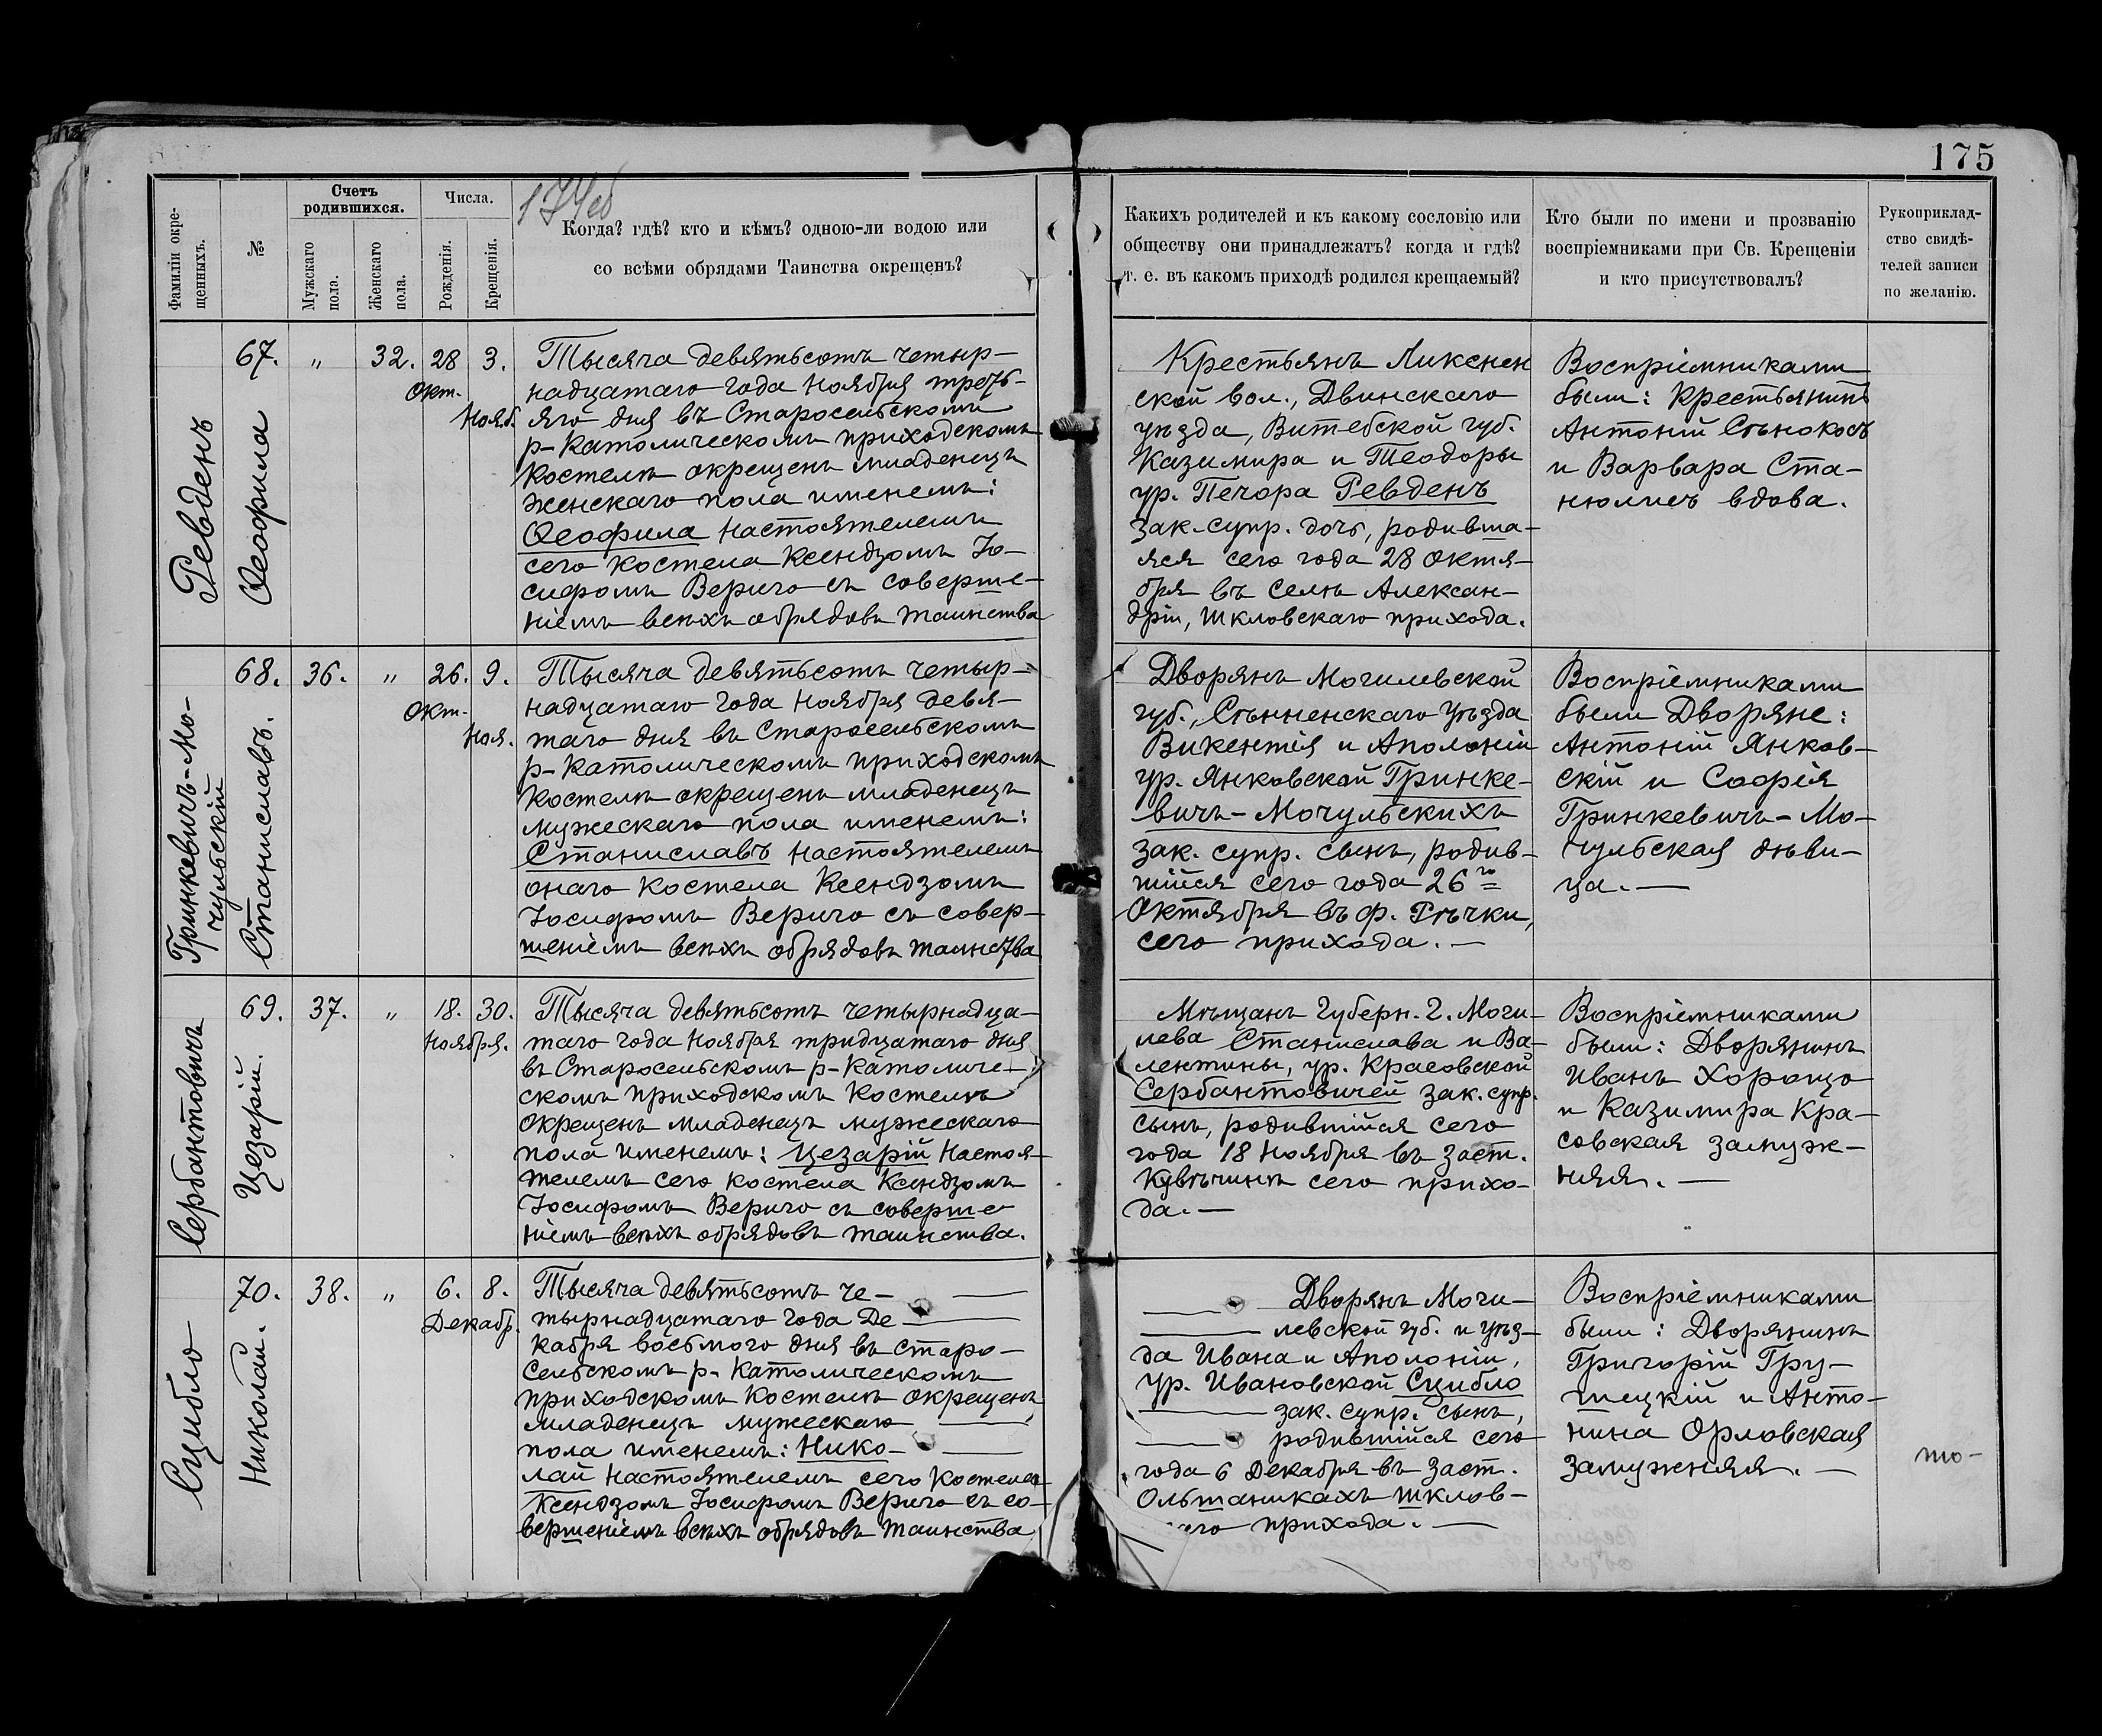 175
174об
Фамиліи окре-
щенныхъ.
№
Счетъ
родившихся.
Мужскаго
пола.
Женскаго
пола.
Числа.
Рожденія.
Крещенія.
Когда? гдѣ? кто и кѣмъ? одною-ли водою или
со всѣми обрядами Таинства окрещенъ?
Какихъ родителей и къ какому сословію или
обществу они принадлежатъ? когда и гдѣ?
т. е. въ какомъ приходѣ родился крещаемый?
Кто были по имени и прозванію
воспріемниками при Св. Крещеніи
и кто присутствовалъ?
Рукоприклад-
ство свидѣ-
телей записи
по желанію.
Ревденъ
Ѳеофила
67. " 32. 28 3.
Окт.
Нояб.
Тысяча девятьсотъ четыр-
надцатаго года Ноября треть-
яго дня въ Старосельскомъ
р-Католическомъ приходскомъ
Костелѣ окрещенъ младенецъ
женскаго пола именемъ:
Ѳеофила Настоятелемъ
сего Костела Ксендзомъ Іо-
сифомъ Верыго съ соверше-
ніемъ всѣхъ обрядовъ таинства
Крестьянъ Ликснен
ской вол., Двинскаго
уѣзда, Витебской губ.
Казимира и Теодоры
ур. Печора Ревденъ
зак. супр. дочь, родивша-
яся сего года 28 Октя-
бря въ селѣ Алексан-
дріи, Шкловскаго прихода.
Воспріемниками
были: Крестьянинъ
Антоній Сѣнокосъ
и Варвара Ста-
нюличъ вдова.
Гринкевичъ-Мо-
чульскій
Станиславъ.
68. 36. " 26. 9.
Окт.
Ноя.
Тысяча девятьсотъ четыр-
надцатаго года Ноября девя-
таго дня въ Старосельскомъ
р-Католическомъ приходскомъ
Костелѣ окрещенъ младенецъ
мужескаго пола именемъ:
Станиславъ Настоятелемъ
онаго Костела Ксендзомъ
Іосифомъ Верыго съ совер-
шеніемъ всѣхъ обрядовъ таинства
Дворянъ Могилевской
губ., Сѣнненскаго уѣзда
Викентія и Аполоніи
ур. Янковской Гринке-
вичъ-Мочульскихъ
зак. супр. сынъ, родив-
шійся сего года 26го
Октября въ ф. Рѣчки,
сего прихода.-
Воспріемниками
были Дворяне:
Антоній Янков-
скій и Софія
Гринкевичъ-Мо-
чульская дѣви-
ца.-
Сербантовичъ
Цезарій.
69. 37. " 18. 30.
Ноября.
Тысяча девятьсотъ четырнадца-
таго года Ноября тридцатаго дня
въ Старосельскомъ р-Католиче-
скомъ приходскомъ Костелѣ
окрещенъ младенецъ мужескаго
пола именемъ: Цезарій Настоя-
телемъ сего Костела Ксендзомъ
Іосифомъ Верыго съ соверше-
ніемъ всѣхъ обрядовъ таинства.
Мѣщанъ Губерн. г. Моги-
лева Станислава и Ва-
лентины, ур. Красовской
Сербантовичей зак. супр.
сынъ, родившійся сего
года 18 Ноября въ заст.
Кувѣчинѣ сего прихо-
да.-
Воспріемниками
были: Дворянинъ
Иванъ Хорощо
и Казимира Кра-
совская замуж-
няя.-
Сцибло
Николай.
70. 38. " 6. 8.
Декабр.
Тысяча девятьсотъ че-
тырнадцатаго года Де-
кабря восьмого дня въ Старо-
сельскомъ р-Католическомъ
приходскомъ Костелѣ окрещенъ
младенецъ мужескаго
пола именемъ: Нико-
лай Настоятелемъ сего Костела
Ксендзомъ Іосифомъ Верыго съ со-
вершеніемъ всѣхъ обрядовъ таинства
Дворянъ Моги-
левской губ. и уѣз-
да Ивана и Аполоніи,
ур. Ивановской Сцибло
зак. супр. сынъ,
родившійся сего
года 6 Декабря въ заст.
Ольшаникахъ Шклов-
прихода.-
Воспріемниками
были: Дворянинъ
Григорій Гру-
шецкій и Анто-
нина Орловская
замужняя.-
то-